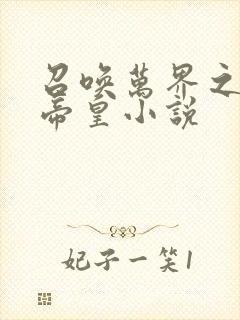 召喚萬界之
帝皇小說
妃子一笑1